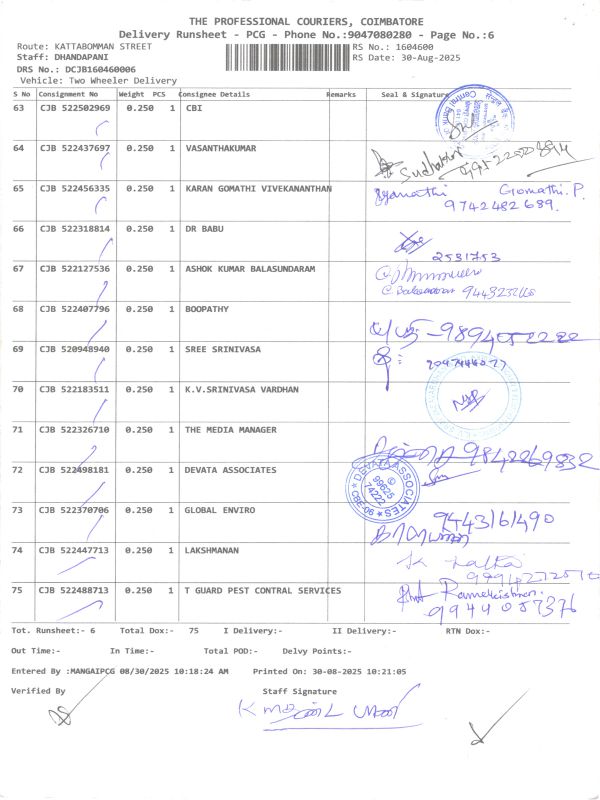 THE PROFESSIONAL COURIERS, COIMBATORE
Delivery Runsheet - PCG - Phone No.:9047080280 - Page No.:6
Route: KATTABOMMAN STREET RS No.: 1604600
Staff: DHANDAPANI RS Date: 30-Aug-2025
DRS No.: DCJB160460006
Vehicle: Two Wheeler Delivery
S No Consignment No Weight PCS Consignee Details Remarks Seal & Signature
63 CJB 522502969 0.250 1 CBI
64 CJB 522437697 0.250 1 VASANTHAKUMAR
65 CJB 522456335 0.250 1 KARAN GOMATHI VIVEKANANTHAN Gomathi.P.
9742482689.
66 CJB 522318814 0.250 1 DR BABU
2531753
67 CJB 522127536 0.250 1 ASHOK KUMAR BALASUNDARAM
68 CJB 522407796 0.250 1 BOOPATHY
69 CJB 520948940 0.250 1 SREE SRINIVASA
70 CJB 522183511 0.250 1 K.V.SRINIVASA VARDHAN
71 CJB 522326710 0.250 1 THE MEDIA MANAGER
9842269832
72 CJB 522498181 0.250 1 DEVATA ASSOCIATES
DEVATA ASSOCIATES
99625
74222
CBE-06
73 CJB 522370706 0.250 1 GLOBAL ENVIRO
9443161490
74 CJB 522447713 0.250 1 LAKSHMANAN
75 CJB 522488713 0.250 1 T GUARD PEST CONTRAL SERVICES
9944057376
Tot. Runsheet:- 6 Total Dox:- 75 I Delivery:- II Delivery:- RTN Dox:-
Out Time:- In Time:- Total POD:- Delvy Points:-
Entered By :MANGAIPCG 08/30/2025 10:18:24 AM Printed On: 30-08-2025 10:21:05
Verified By Staff Signature